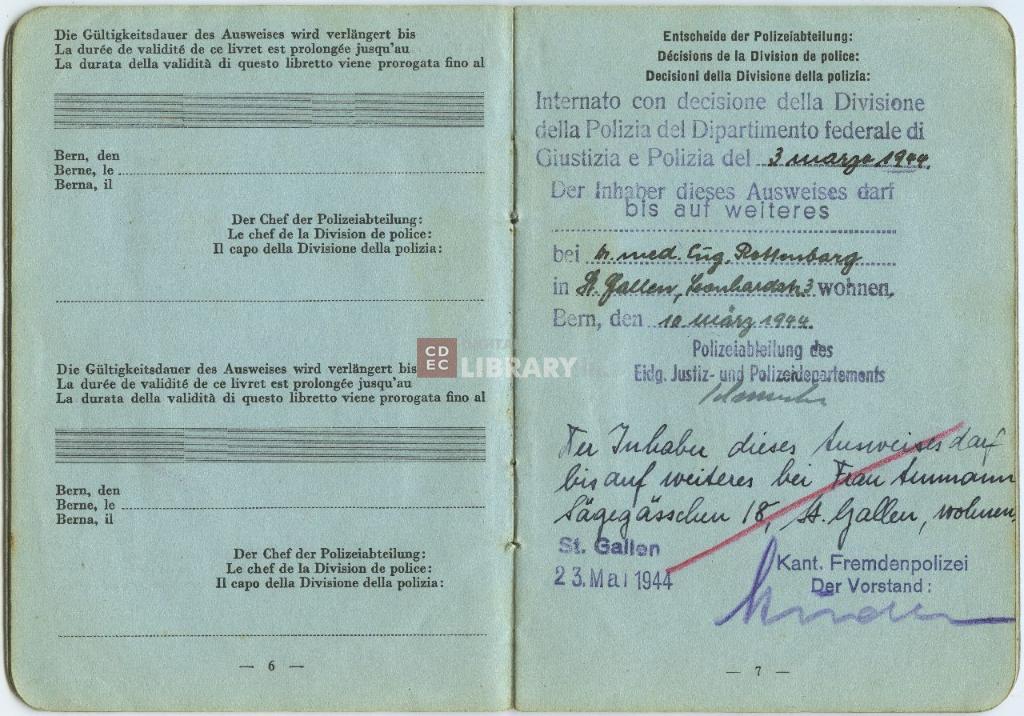 Die Gültigkeitsdauer des Ausweises wird verlängert bis
La durée de validité de ce livret est prolongée jusqu'au
La durata della validità di questo libretto viene prorogata fino al
Bern, den
Berne, le
Berna, il
Der Chef der Polizeiabteilung:
Le chef de la Division de police:
Il capo della Divisione della polizia:
Die Gültigkeitsdauer des Ausweises wird verlängert bis
La durée de validité de ce livret est prolongée jusqu'au
La durata della validità di questo libretto viene prorogata fino al
Bern, den
Berne, le
Berna, il
Der Chef der Polizeiabteilung:
Le chef de la Division de police:
Il capo della Divisione della polizia:
— 6 —
Entscheide der Polizeiabteilung:
Décisions de la Division de police:
Decisioni della Divisione della polizia:
Internato con decisione della Divisione
della Polizia del Dipartimento federale di
Giustizia e Polizia del 3 marzo 1944.
Der Inhaber dieses Ausweises darf
bis auf weiteres
bei Dr. med. Eug. Rottenberg
in St. Gallen, Leonhardstr. 3 wohnen.
Bern, den 10 März 1944.
Polizeiabteilung des
Eidg. Justiz- und Polizeidepartements
Der Inhaber dieses Ausweises darf
bis auf weiteres bei Frau Ammann
Sägegässchen 18, St. Gallen, wohnen.
St. Gallen
23. Mai 1944
Kant. Fremdenpolizei
Der Vorstand:
— 7 —
CDEC
DIGITAL
LIBRARY